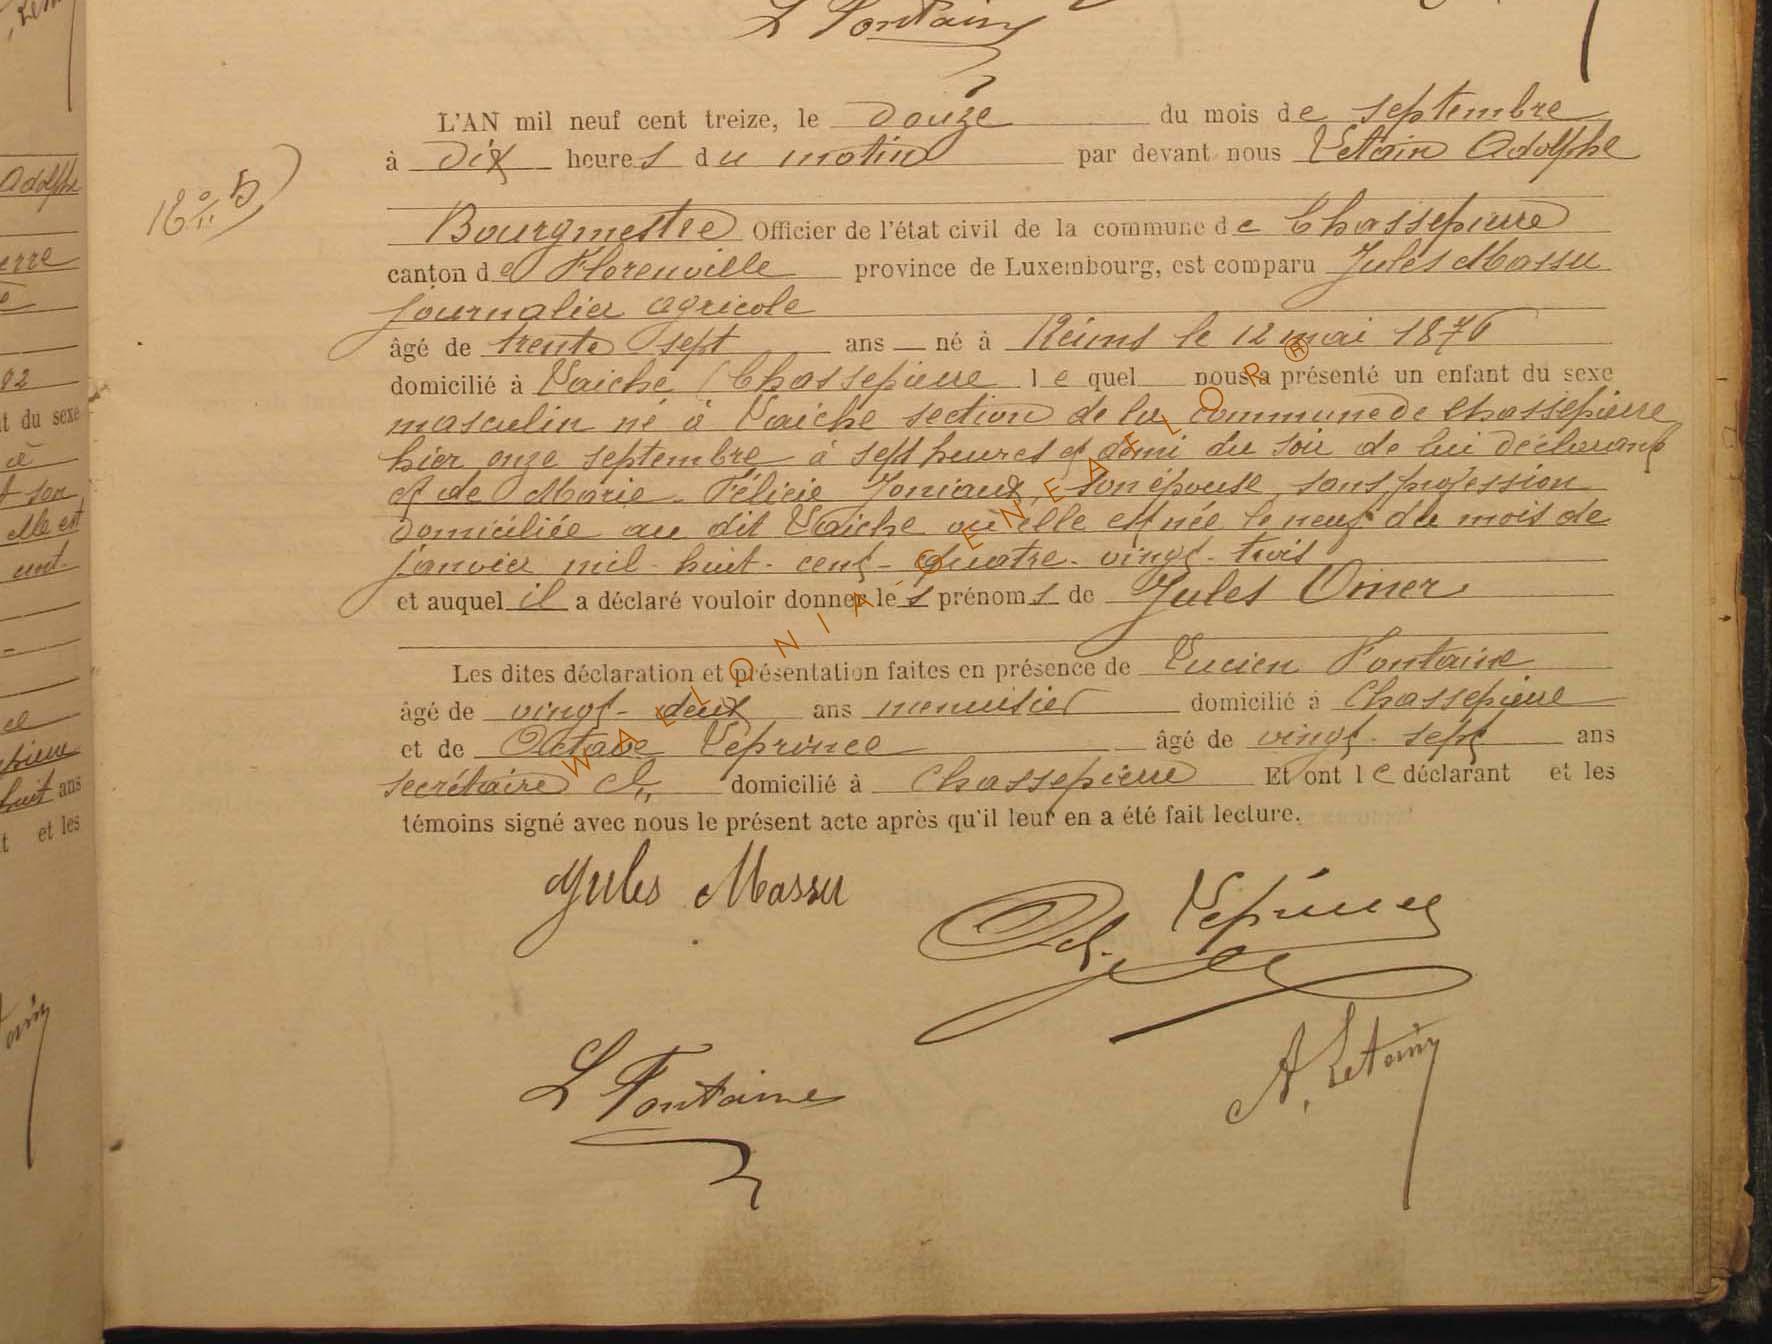 L Fontaine
L'AN mil neuf cent treize, le douze du mois de septembre
à dix heures du matin par devant nous Letain Adolphe
Bourgmestre Officier de l'état civil de la commune de Chassepierre
canton de Florenville province de Luxembourg, est comparu Jules Massu
journalier agricole
âgé de trente sept ans né à Reims le 12 mai 1876
domicilié à Laiche Chassepierre lequel nous a présenté un enfant du sexe
masculin né à Laiche section de la commune de Chassepierre
hier onze septembre à sept heures et demi du soir de lui déclarant
et de Marie Félicie Joniaux, son épouse, sans profession
domiciliée au dit Laiche où elle est née le neuf du mois de
janvier mil-huit-cent-quatre-vingt-trois
et auquel il a déclaré vouloir donner les prénoms de Jules Omer
Les dites déclaration et présentation faites en présence de Lucien Fontaine
âgé de vingt-deux ans menuisier domicilié à Chassepierre
et de Octave Leprince âgé de vingt-sept ans
secrétaire cl domicilié à Chassepierre Et ont le déclarant et les
témoins signé avec nous le présent acte après qu'il leur en a été fait lecture.
Jules Massu
Oct. Leprince
L Fontaine
A. Letain
WALLONIA-GENEAFLOR®